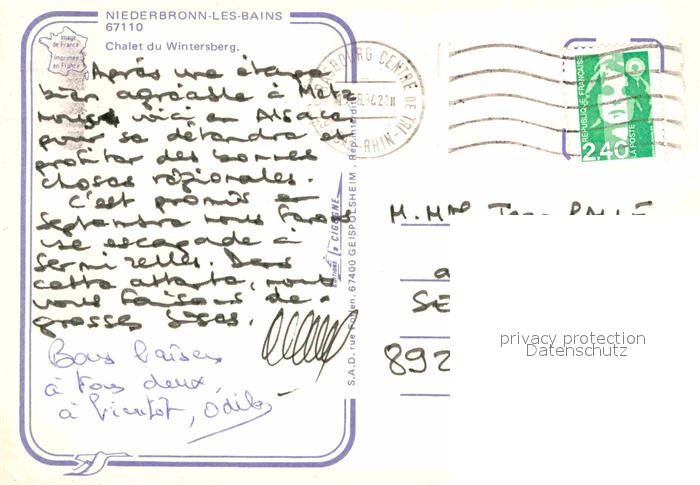 NIEDERBRONN-LES-BAINS
67110
Chalet du Wintersberg.
Image
de France
Imprimée
en France
Après une étape
bien agréable à Metz
nous voici en Alsace
pour se détendre et
profiter des bonnes
choses régionales.
C'est promis en
septembre nous ferons
une escapade à
Sermizelles. Dans
cette attente, nous
vous faisons de
grosses bises.
Bons baisers
à tous deux,
à bientôt, Odile
S.A.D. rue Forlen. 67400 GEISPOLSHEIM. Rep. interdite
Editions La CIGOGNE
CENTRE DE TRI
RHIN
REPUBLIQUE FRANÇAISE
2,40
LA POSTE
M. Mme
SE
892
privacy protection
Datenschutz